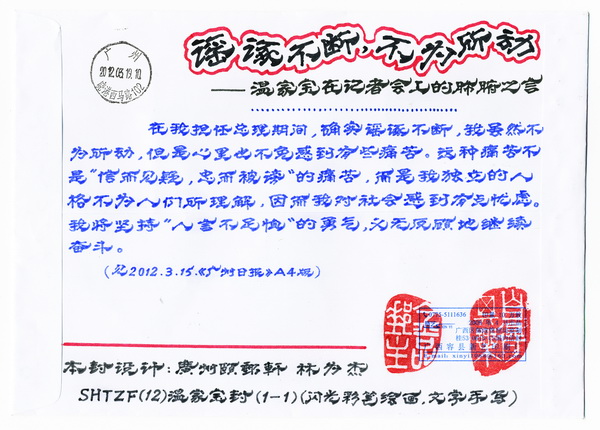 谣诼不断，不为所动
——温家宝在记者会上的肺腑之言
广州
2012.03.19.10
在我担任总理期间，确实谣诼不断，我虽然不
为所动，但是心里也不免感到有些痛苦。这种痛苦不
是“信而见疑，忠而被谤”的痛苦，而是我独立的人
格不为人们所理解，因而我对社会感到有点忧虑。
我将坚持“人言不足恤”的勇气，义无反顾地继续
奋斗。
（见2012.3.15.《广州日报》A4版）
0775-5111636
本封设计：广州颐邮轩 林为杰
SHTZF(12)温家宝封(1-1)(闪光彩笔绘画,文字手写)